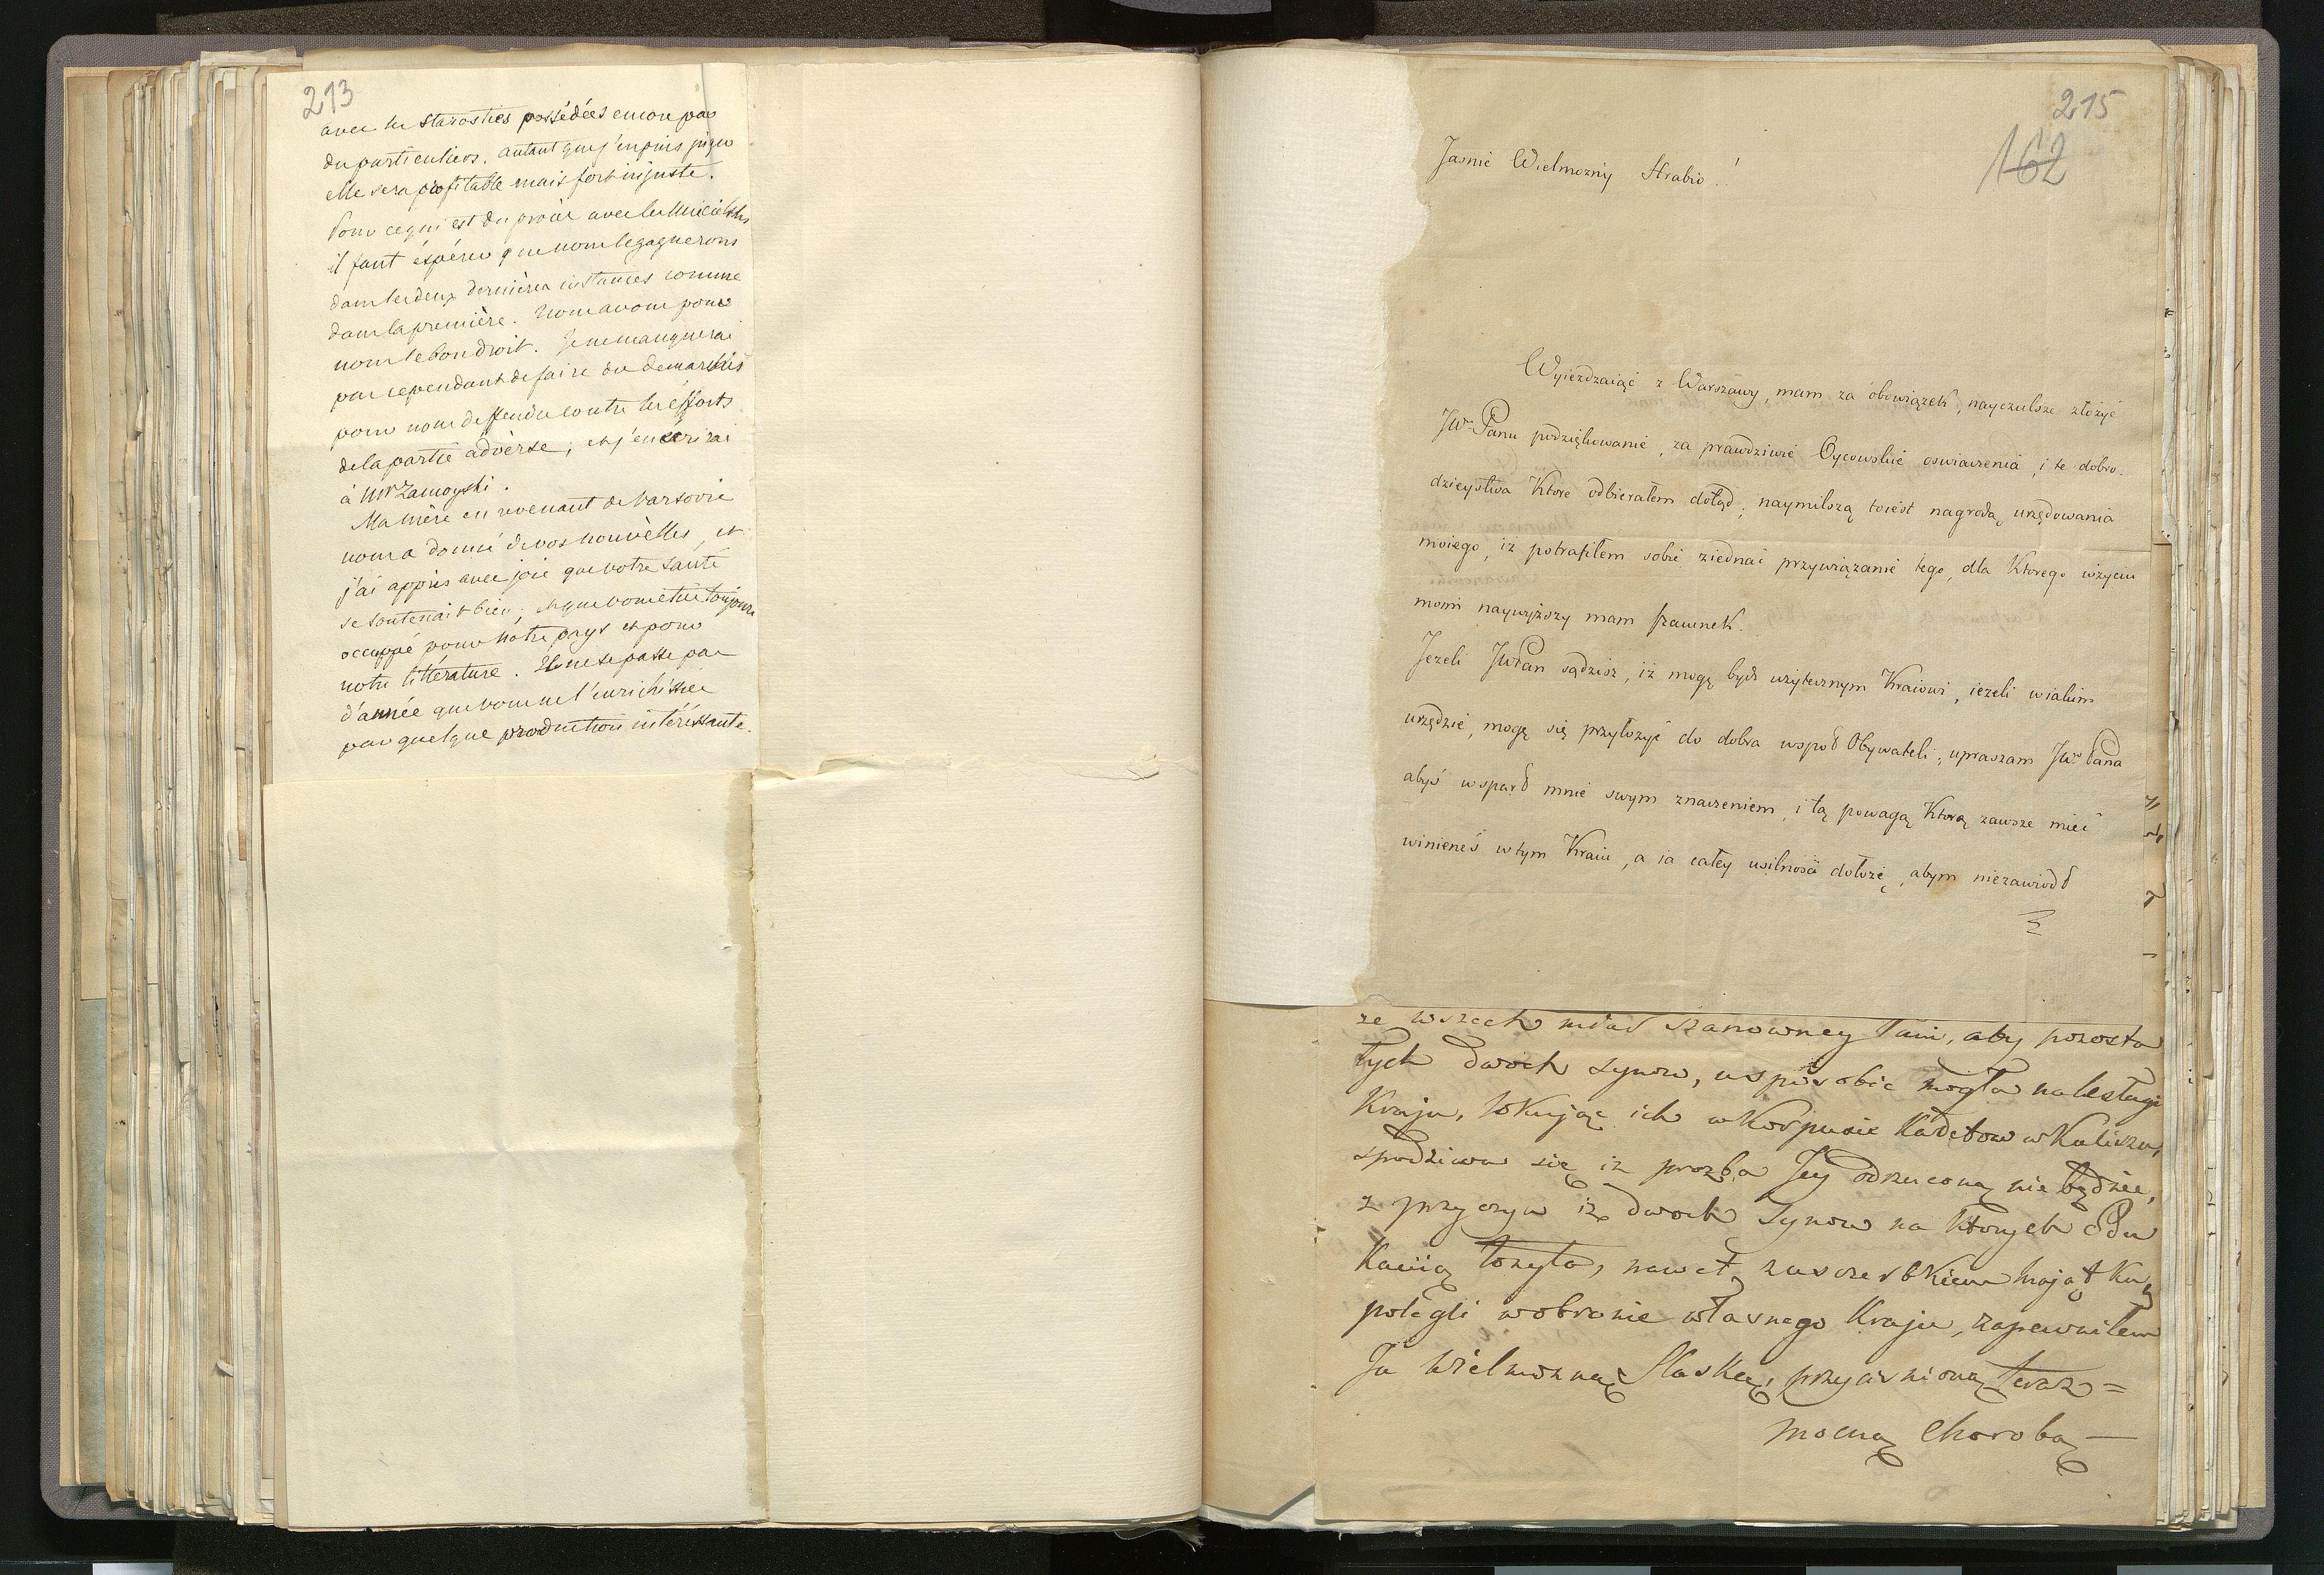 213
avec les starosties possédées encore par
du particuliers. autant que j'en puis juger
elle sera profitable mais fort injuste.
Pour ce qui est du procès avec les
il faut éspérer que nous le gagnerons
dans les deux dernières instances comme
dans la première. Nous avons pour
nous le bon droit. Je ne manquerai
pas cependant de faire des demarches
pour nous deffendre contre les éfforts
de la partie adverse; et j'en écrirai
à Mr Zamoyski.
Ma mère en revenant de Varsovie
nous a donné de vos nouvèlles, et
j'ai appris avec joie que votre santé
se soutenait bien; et que vous étiéz toujours
occuppé pour notre pays et pour
notre littérature. Il ne se passe pas
d'année que vous ne l'enrichissiez
par quelque production intéréssante.
215
162
Jasnie Wielmozny Hrabio!
Wyiezdzaiąc z Warszawy, mam za obowiązek, nayczulsze złożyć
JW. Panu podziękowanie, za prawdziwie Oycowskie oswiadczenia, i te dobro-
dzieystwa które odbierałem dotąd; naymilszą toiest nagrodą urzędowania
moiego, iż potrafiłem sobie ziednać przywiązanie tego, dla Ktorego wżyciu
moim naywyższy mam szacunek.
Jeżeli JWPan sądzisz, iż mogę bydź użytecznym Kraiowi, ieżeli wiakim
urzędzie, mogę się przyłożyć do dobra wspoł Obywateli; upraszam JW. Pana
abyś wsparł mnie swym znaczeniem, i tą powagą Ktorą zawsze mieć
winieneś wtym Kraiu, a ia całey usilności dołożę, abym niezawiodł
ze wszech miar szanowney Pani, aby pozosta
łych dwoch synow, usposobić mogła na usługi
Kraju, lokując ich w Korpusie Kadetow w Kaliszu,
spodziewa się iż prozba Jey odrzuconą nie będzie,
z przyczyn iż dwoch Synow na ktorych Edu
kacią łożyła, nawet zuszczerbkiem majątku,
polegli wobronie własnego Kraju, zapewniłem
Ja Wielmozną Slaską, przyciśnioną teraz=
mocną chorobą—